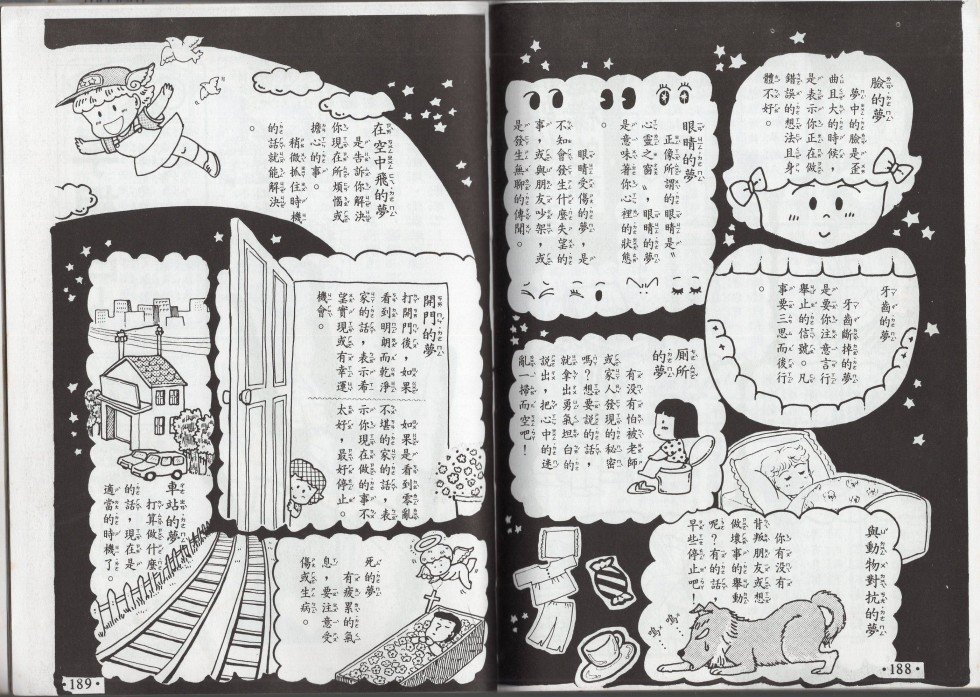 臉的夢
夢中的臉是歪
曲且大的時候，
是表示你正在做
錯誤的想法且身
體不好。
眼睛的夢
正像所謂的眼睛是〝
心靈之窗〞，眼睛的夢
是意味著你心裡的狀態
。
眼睛受傷的夢，是
不知會發生什麼失望的
事，或與朋友吵架，或
是發生無聊的傳聞。
牙齒的夢
牙齒斷掉的夢
是要你注意言行
舉止的信號。凡
事要三思而後行
。
廁所
的夢
有沒有怕被老師
或家人發現的秘密
嗎？想要說的話，
就拿出勇氣坦白的
說出，把心中的迷
亂一掃而空吧！
與動物對抗的夢
你有沒有
背叛朋友或想
做壞事的舉動
呢？有的話，
早些停止吧！
嗚…嗚…
·188·
在空中飛的夢
是告訴你解決
你現在所煩惱或
擔心的事。
稍微抓住時機
的話就能解決
。
開門的夢
打開門後，如果
看到明朗而乾淨
家的話，表示希
望實現或有幸運
機會。
如果是看到零亂
不堪的家的話，表
示你現在做的事不
太好，最好停止。
車站的夢
打算做什麼
的話，現在是
適當的時機了。
死的夢
有疲累的氣
息，要注意受
傷或生病。
·189·